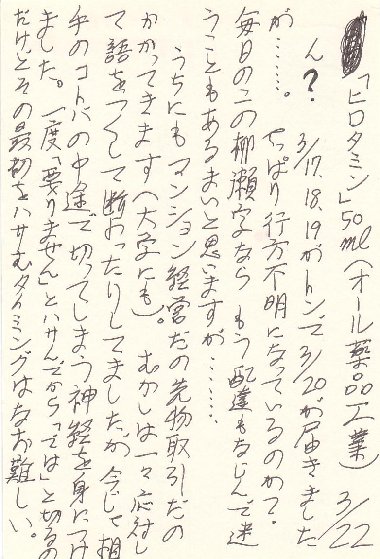 「ヒロタミン」50ml（オール薬品工業） 3/22
ん？ 3/17.18.19がトンで 3/20が届きました
が……。やっぱり行方不明になっているのかな？
毎日のこの柳瀬字なら もう配達もなじんで迷
うこともあるまいと思いますが……。
うちにもマンション経営だの先物取引だの
かかってきます（大学にも）。むかしは一々応対し
て語をつくして断わったりしてましたが 今じゃ相
手のコトバの中途で切ってしまう神経を身につけ
ました。一度「要りません」とハサんでから「では」と切るの
だけどその最初をハサむタイミングはなお難しい。